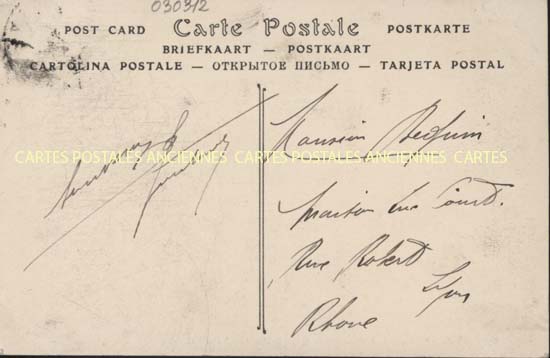 030312
POST CARD Carte Postale POSTKARTE
BRIEFKAART — POSTKAART
CARTOLINA POSTALE — ОТКРЫТОЕ ПИСЬМО — TARJETA POSTAL
CARTES POSTALES ANCIENNES CARTES POSTALES ANCIENNES CARTES
Monsieur
Maison
Rue Robert
Lyon
Rhone